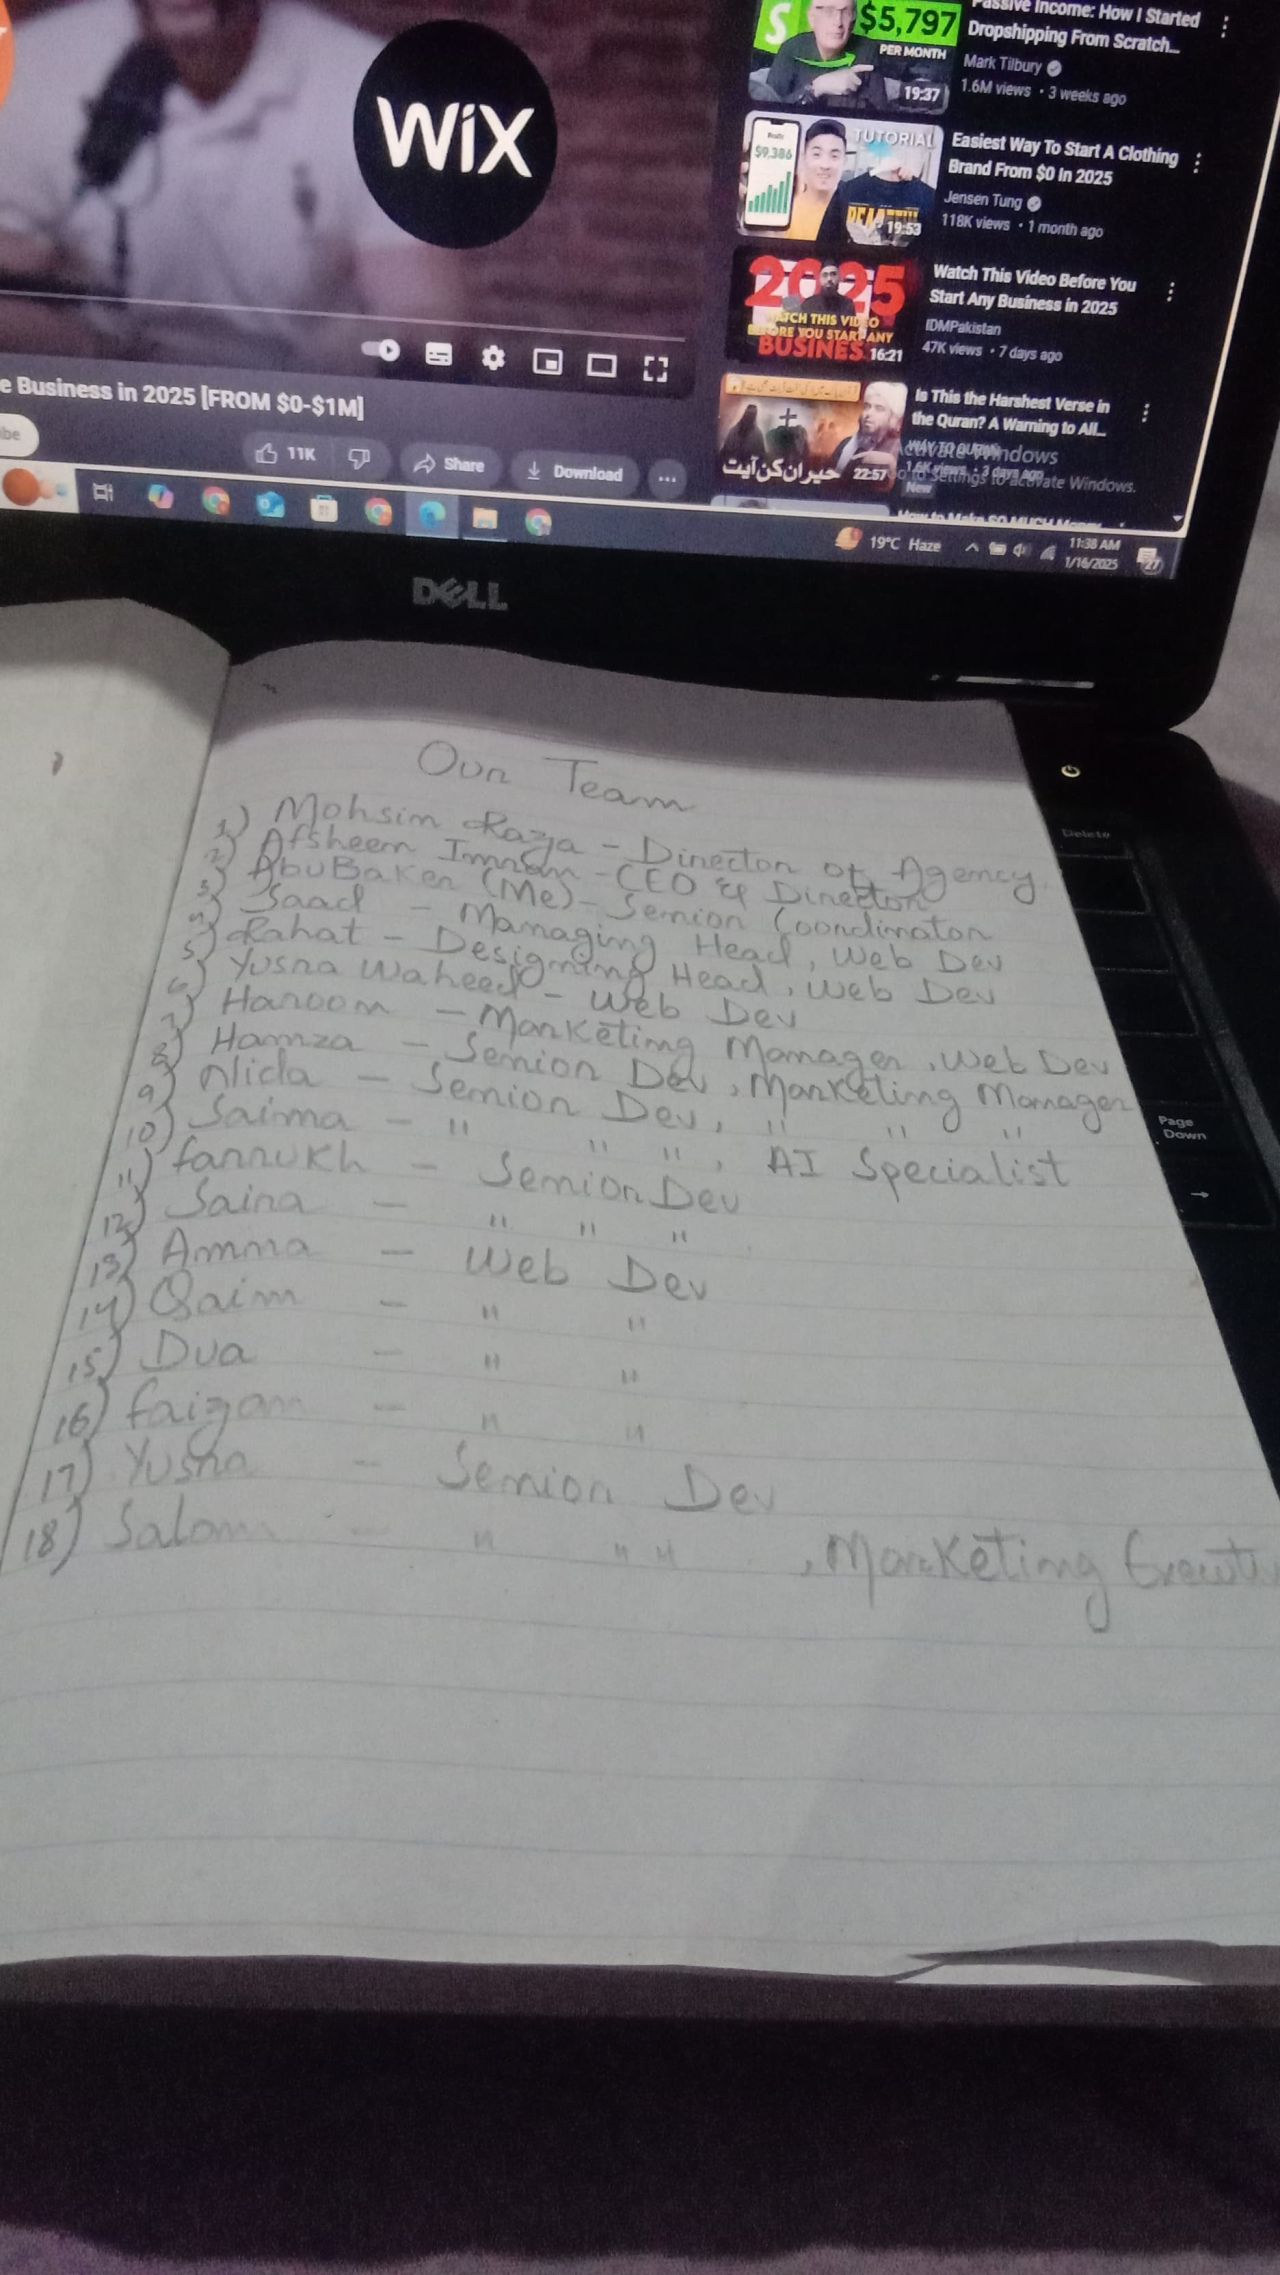 WiX
$5,797
PER MONTH
19:37
Passive Income: How I Started
Dropshipping From Scratch...
Mark Tilbury
1.6M views • 3 weeks ago
$9,386
TUTORIAL
19:53
Easiest Way To Start A Clothing
Brand From $0 In 2025
Jensen Tung
118K views • 1 month ago
2025
WATCH THIS VIDEO
BEFORE YOU START ANY
BUSINES
16:21
Watch This Video Before You
Start Any Business in 2025
IDMPakistan
47K views • 7 days ago
حیران کن آیت
22:57
Is This the Harshest Verse in
the Quran? A Warning to All...
WAY TO QURAN
1.6K views • 3 days ago
New
Activate Windows
Go to Settings to activate Windows.
How to Make SO MUCH Money
e Business in 2025 [FROM $0-$1M]
be
11K
Share
Download
19°C Haze
11:38 AM
1/16/2025
27
DELL
Delete
Page
Down
Our Team
1) Mohsim Raza - Director of Agency
2) Afsheen Imran - CEO & Director
3) AbuBaker (Me) - Senior Coordinator
4) Saad - Managing Head, Web Dev
5) Rahat - Designing Head, Web Dev
6) Yusra Waheed - Web Dev
7) Haroon - Marketing Manager, Web Dev
8) Hamza - Senior Dev, Marketing Manager
9) Nida - Senior Dev, " " "
10) Saima - " " ", AI Specialist
11) Farrukh - Senior Dev
12) Saira - " " "
13) Amma - Web Dev
14) Qaim - " "
15) Dua - " "
16) Faizan - " "
17) Yusra - Senior Dev
18) Salam - " " ", Marketing Executiv